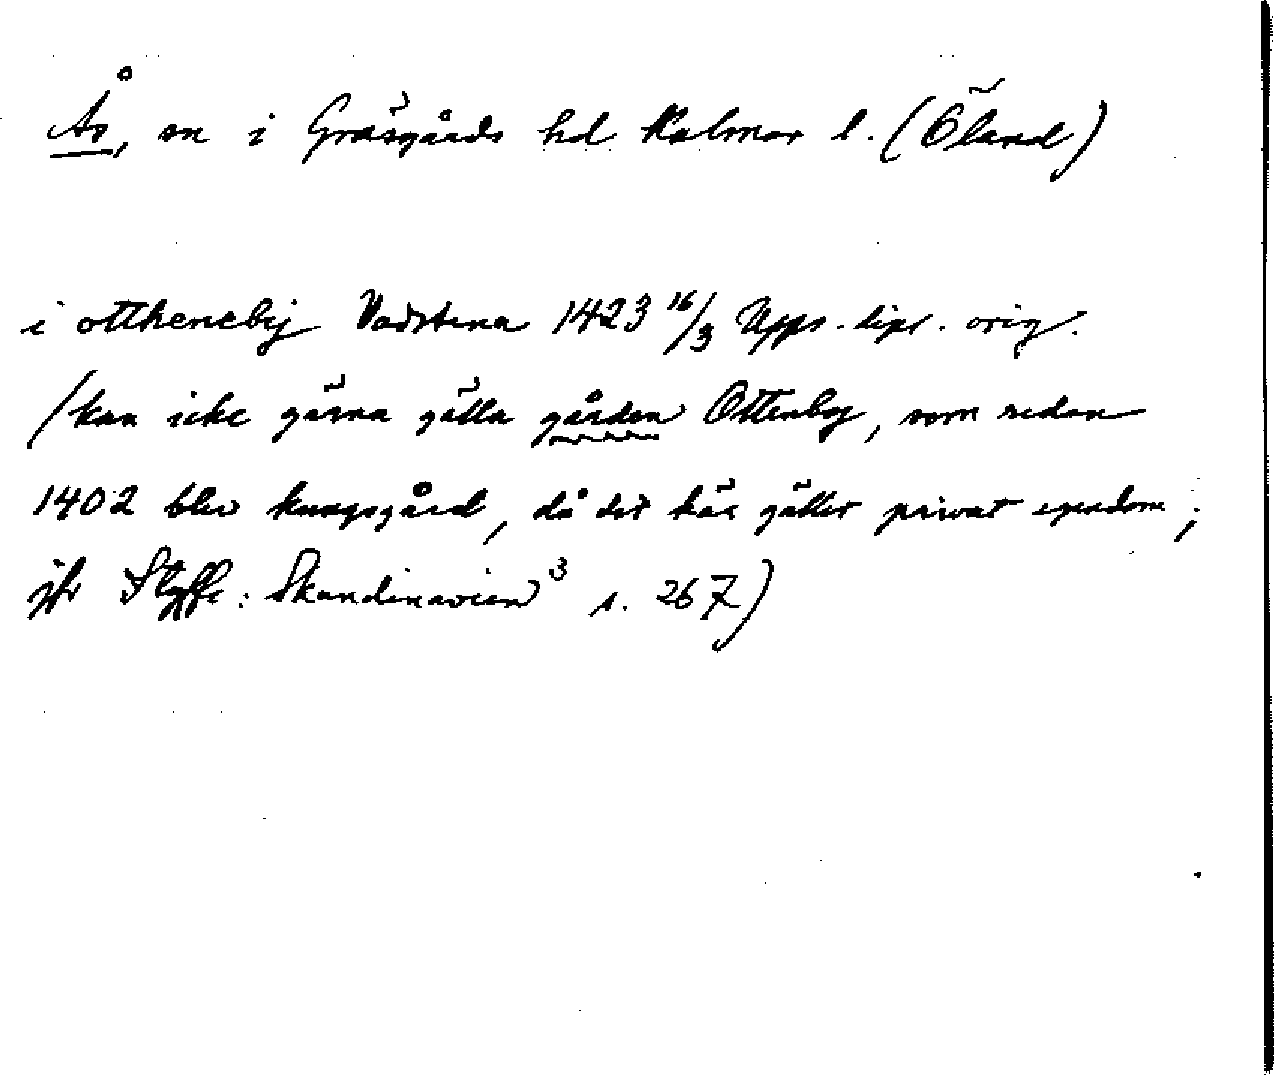 Ås, sn i Gräsgårds hd Kalmar l. (Öland)
i ottheneby Vadstena 1423 16/3 Upps. dipl. orig.
(kan icke gärna gälla gården Ottenby, som redan
1402 blev kungsgård, då det här gäller privat egendom;
jfr Styffe: Skandinavien³ s. 267)